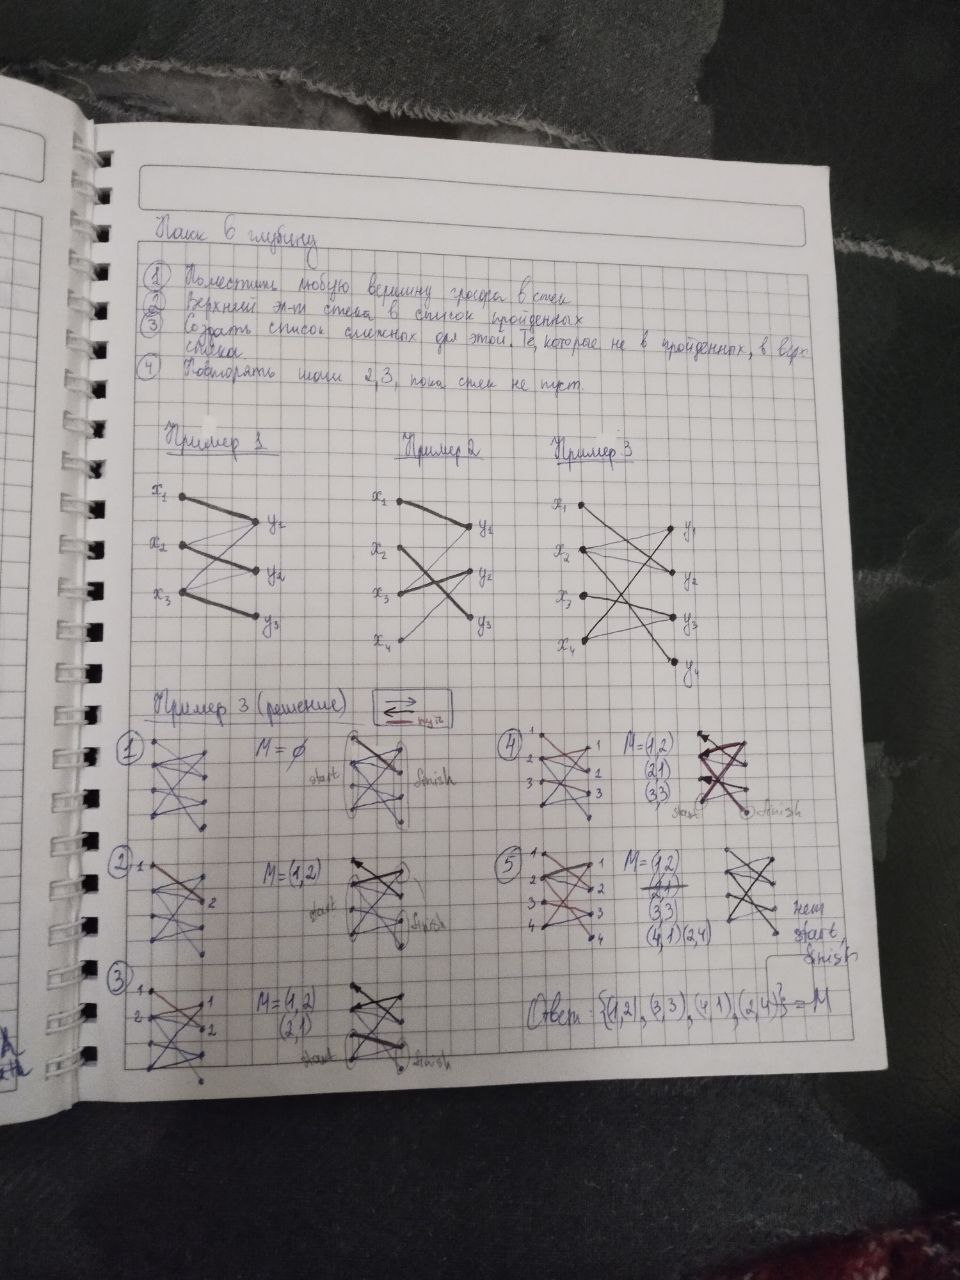 Поиск в глубину
① Поместить любую вершину графа в стек
② Верхний эл-т стека в список пройденных
③ Создать список смежных для этой. Те, которые не в пройденных, в верх
стека
④ Повторять шаги 2,3, пока стек не пуст.
Пример 1 Пример 2 Пример 3
x₁ y₁ x₁ y₁ x₁ y₁
x₂ y₂ x₂ y₂ x₂ y₂
x₃ y₃ x₃ y₃ x₃ y₃
x₄ x₄ y₄
Пример 3 (решение)
путь
① M = ∅
start finish
② 1 2 M = (1,2)
start finish
③ 1 2 1 2 M = (1,2)
(2,1)
start finish
④ 1 2 3 1 2 3 M = (1,2)
(2,1)
(3,3)
start finish
⑤ 1 2 3 4 1 2 3 4 M = (1,2)
(2,1)
(3,3)
(4,1)(2,4)
нет
start,
finish
Ответ: {(1,2),(3,3),(4,1),(2,4)} = M